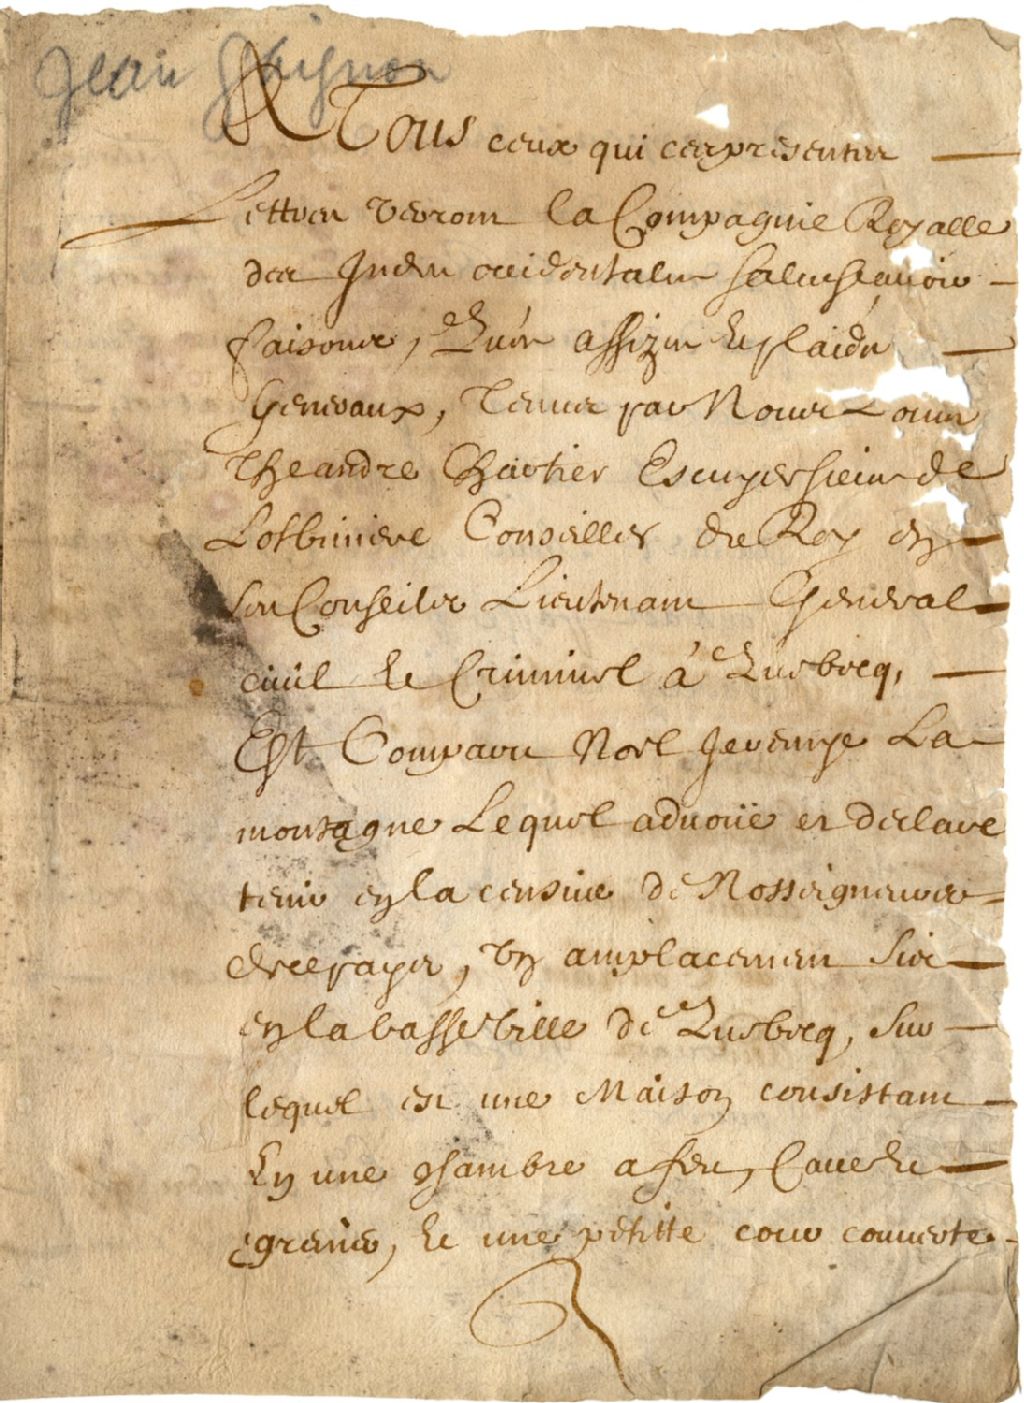 Jean Gaignon
A Tous ceux qui ces presentes
Lettres verront la Compagnie Royalle
des Indes occidentales salut sçavoir
faisons, Qu'es assizes et plaids
Generaux, tenus par Nous Louis
Theandre Chartier Escuyer sieur de
Lotbiniere Conseiller du Roy en
ses Conseils Lieutenant General
ciuil et Criminel à Quebecq,
Est Comparu Noel Jeremye La
montagne Lequel aduoüe et declare
tenir en la censiue de Nosseigneurs
de ce pays, vn amplacement sis
en la basse ville de Quebecq, sur
lequel est une Maison consistant
En une chambre a feu, Caue et
grenier, et une petitte cour couuerte